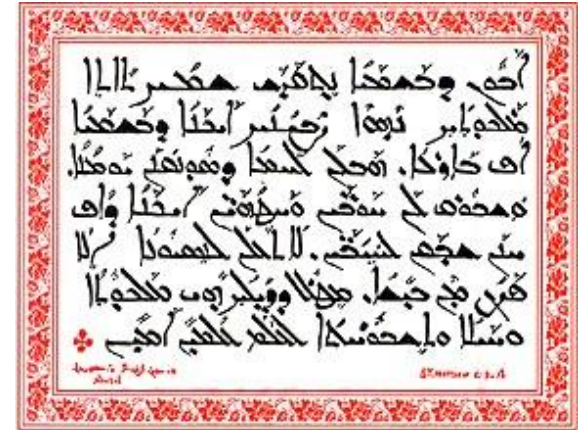 ܐܒܘܢ ܕܒܫܡܝܐ ܢܬܩܕܫ ܫܡܟ ܬܐܬܐ
ܡܠܟܘܬܟ ܢܗܘܐ ܨܒܝܢܟ ܐܝܟܢܐ ܕܒܫܡܝܐ
ܐܦ ܒܐܪܥܐ. ܗܒܠܢ ܠܚܡܐ ܕܣܘܢܩܢܢ ܝܘܡܢܐ.
ܘܫܒܘܩ ܠܢ ܚܘܒܝܢ ܘܚܛܗܝܢ ܐܝܟܢܐ ܕܐܦ
ܚܢܢ ܫܒܩܢ ܠܚܝܒܝܢ. ܠܐ ܬܥܠܢ ܠܢܣܝܘܢܐ ܐܠܐ
ܦܨܢ ܡܢ ܒܝܫܐ. ܡܛܠ ܕܕܝܠܟ ܗܝ ܡܠܟܘܬܐ
ܘܚܝܠܐ ܘܬܫܒܘܚܬܐ ܠܥܠܡ ܥܠܡܝܢ ܐܡܝܢ